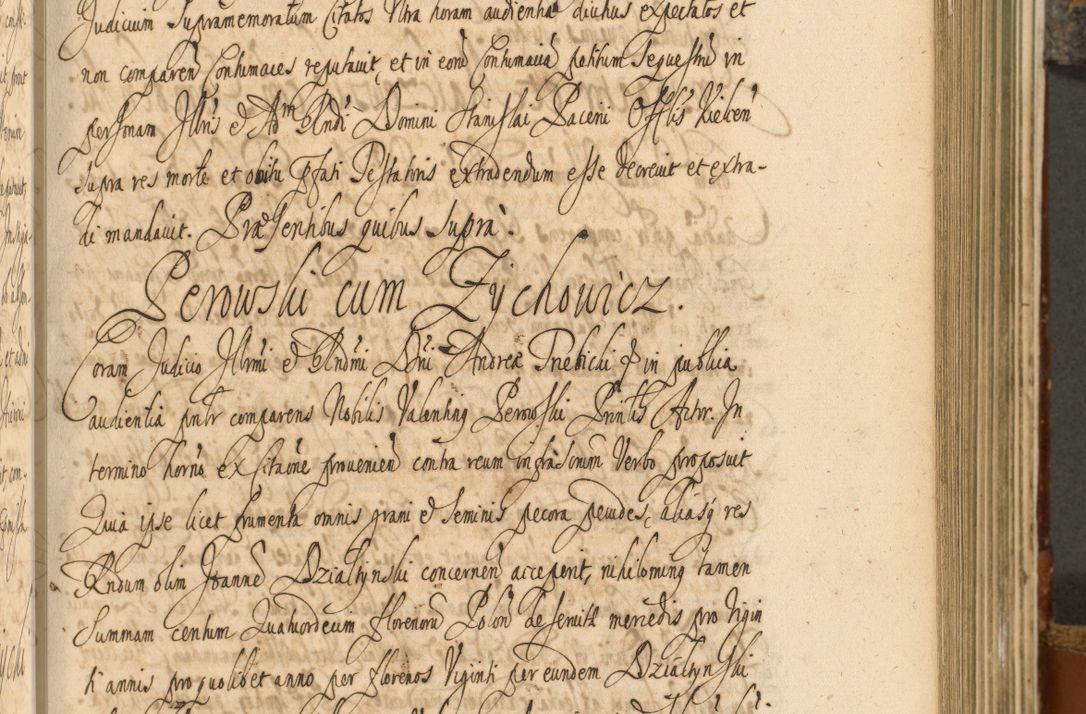 Judicium Supramemoratum Citatos Ultra horam audientiæ diutius expectatos et
non comparen Contumaces reputavit, et in eorū Contumaciā petitum Sequestrū in
personam Illris et Adm Rndi Domini Stanislai Pacewii Offlis Vielicen
Supra res morte et obitu Pfati Testatoris extradendum esse decrevit et extra-
di mandavit. Præsentibus quibus supra.
Perowski cum Zychowicz.
Coram Judicio Illrmi et Rndmi Dni Andreæ Trebicki in publica
audientia pntr comparens Nobilis Valentinq Perowski Prntis Actor. In
termino horno ex citaōne provenien contra reum infrascrium Verbo proposuit
Quia ipse licet frumenta omnis grani et Seminis pecora pecudes, aliasq res
Rndum olim Joannē Dzialtynski concernen acceperit, nihilominq tamen
Summam centum Quatuordecim florenorū Polon deservitæ mercedis pro Vigin
ti annis pro quolibet anno per florenos Viginti per eundem Dzialtynski